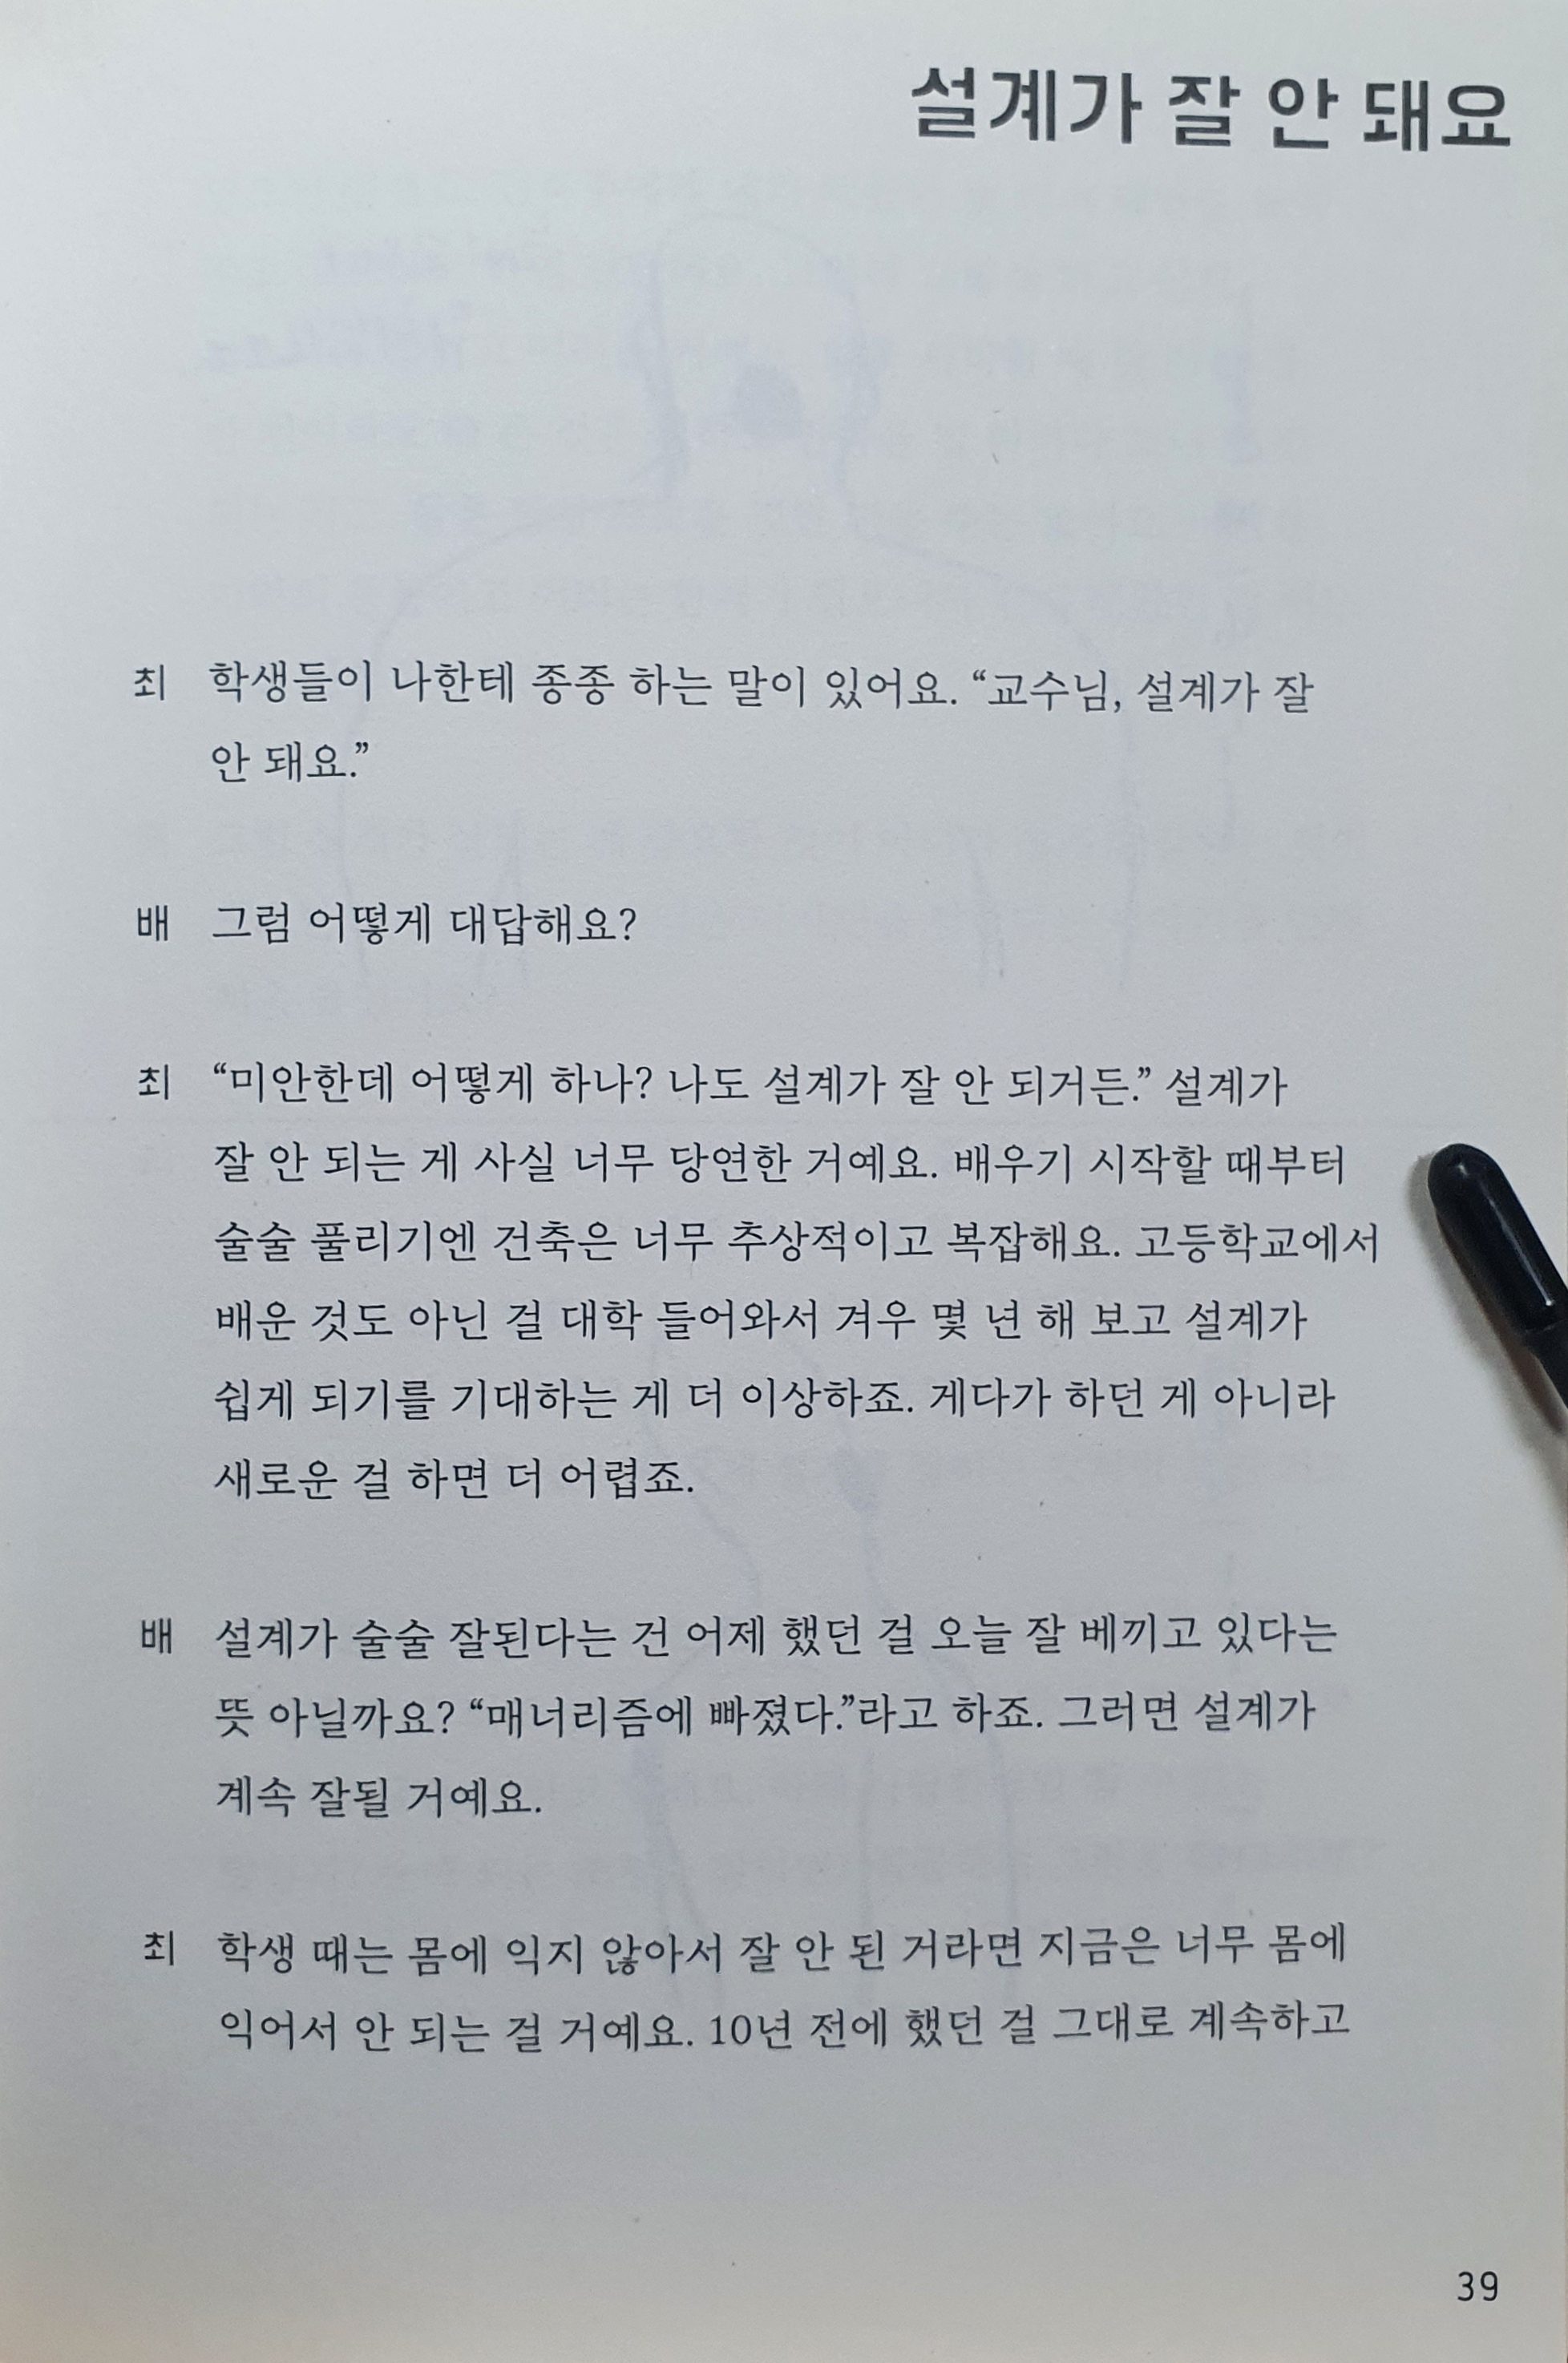 설계가 잘 안 돼요
최 학생들이 나한테 종종 하는 말이 있어요. “교수님, 설계가 잘
안 돼요.”
배 그럼 어떻게 대답해요?
최 “미안한데 어떻게 하나? 나도 설계가 잘 안 되거든.” 설계가
잘 안 되는 게 사실 너무 당연한 거예요. 배우기 시작할 때부터
술술 풀리기엔 건축은 너무 추상적이고 복잡해요. 고등학교에서
배운 것도 아닌 걸 대학 들어와서 겨우 몇 년 해 보고 설계가
쉽게 되기를 기대하는 게 더 이상하죠. 게다가 하던 게 아니라
새로운 걸 하면 더 어렵죠.
배 설계가 술술 잘된다는 건 어제 했던 걸 오늘 잘 베끼고 있다는
뜻 아닐까요? “매너리즘에 빠졌다.”라고 하죠. 그러면 설계가
계속 잘될 거예요.
최 학생 때는 몸에 익지 않아서 잘 안 된 거라면 지금은 너무 몸에
익어서 안 되는 걸 거예요. 10년 전에 했던 걸 그대로 계속하고
39